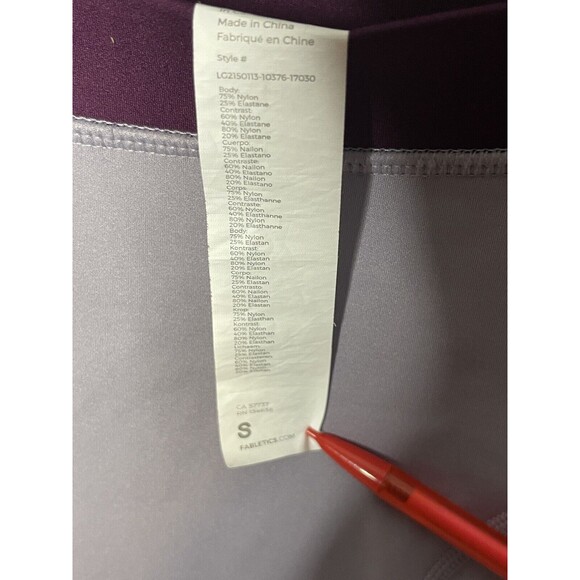 Made in China
Fabriqué en Chine
Style #
LG2150113-10376-17030
Body:
75% Nylon
25% Elastane
Contrast:
60% Nylon
40% Elastane
80% Nylon
20% Elastane
Cuerpo:
75% Nailon
25% Elastano
Contraste:
60% Nailon
40% Elastano
80% Nailon
20% Elastano
Corps:
75% Nylon
25% Élasthanne
Contraste:
60% Nylon
40% Élasthanne
80% Nylon
20% Élasthanne
Body:
75% Nylon
25% Elastan
Kontrast:
60% Nylon
40% Elastan
80% Nylon
20% Elastan
Corpo:
75% Nailon
25% Elastan
Contrasto:
60% Nailon
40% Elastan
80% Nailon
20% Elastan
75% Nylon
25% Elasthan
Kontrast:
60% Nylon
40% Elasthan
80% Nylon
20% Elasthan
75% Nylon
CA 57737
S
FABLETICS.COM